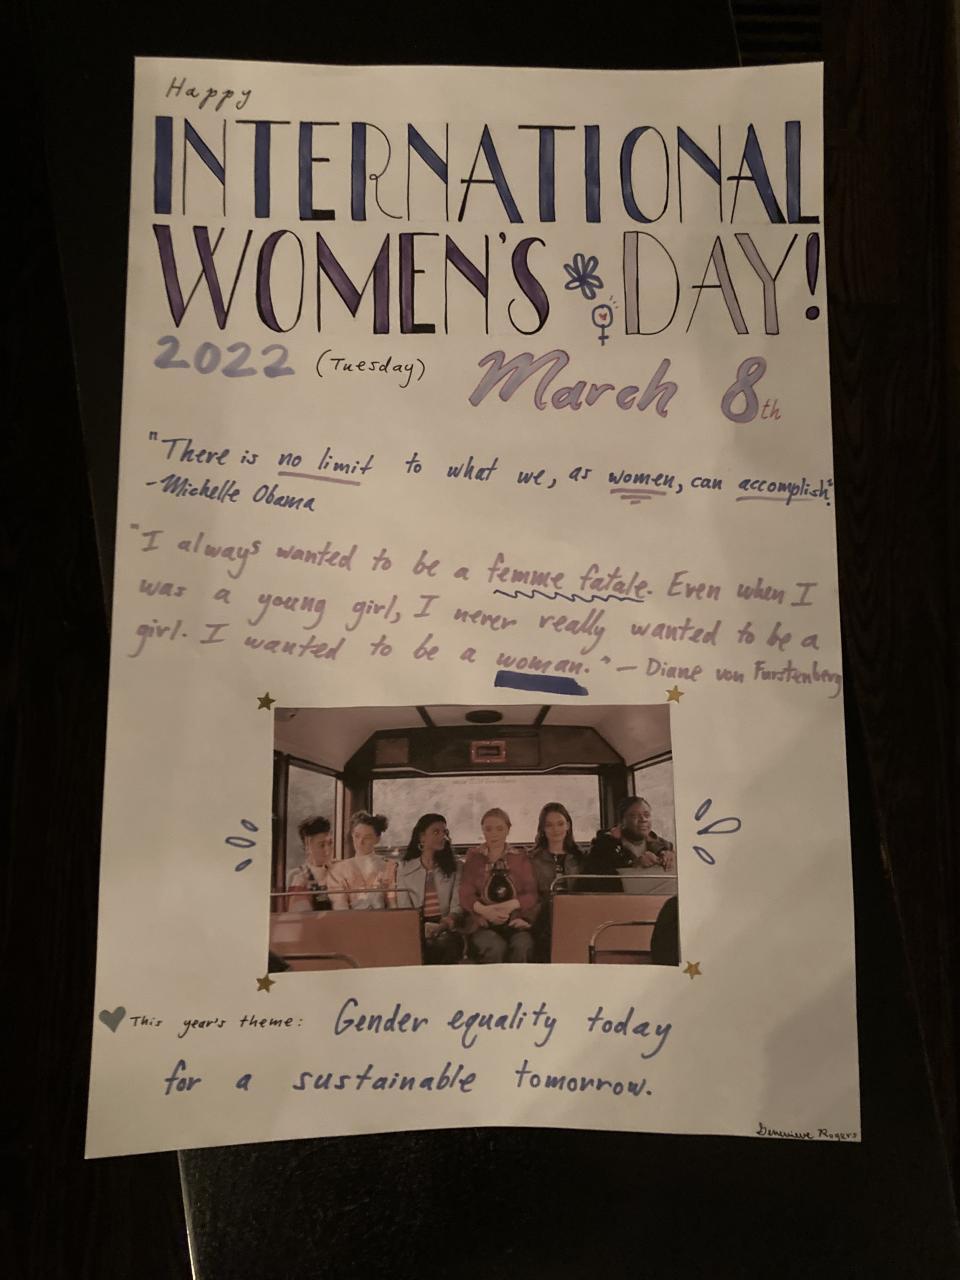 Happy
INTERNATIONAL
WOMEN'S DAY!
2022 (Tuesday) March 8th
"There is no limit to what we, as women, can accomplish"
-Michelle Obama
"I always wanted to be a femme fatale. Even when I
was a young girl, I never really wanted to be a
girl. I wanted to be a woman." - Diane von Furstenberg
This year's theme: Gender equality today
for a sustainable tomorrow.
Genevieve Rogers